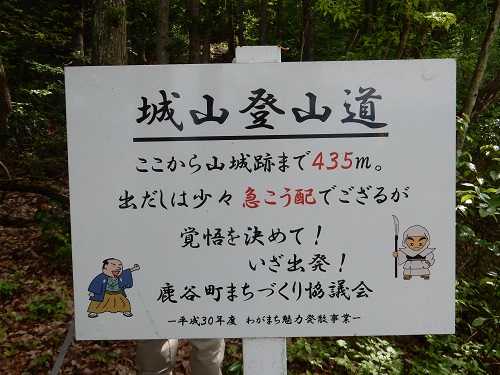 城山登山道
ここから山城跡まで435m。
出だしは少々急こう配でござるが
覚悟を決めて！
いざ出発！
鹿谷町まちづくり協議会
ー平成30年度 わがまち魅力発散事業ー